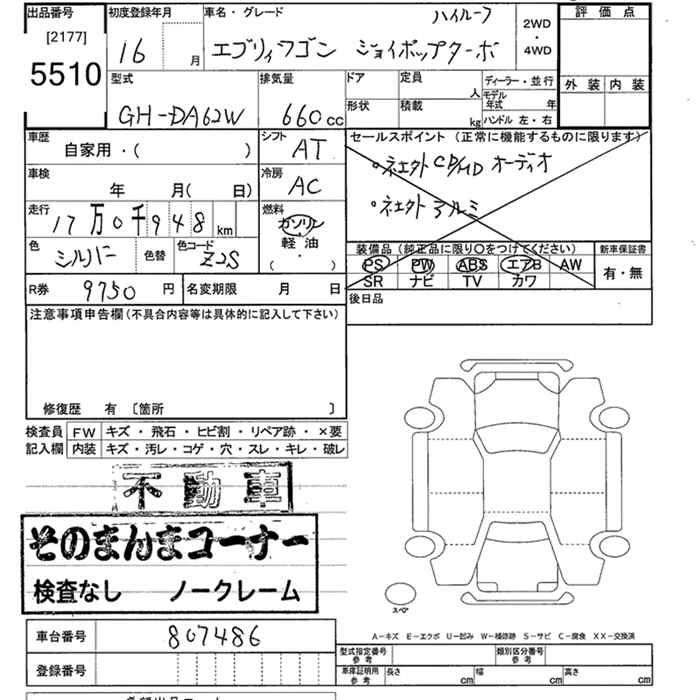 出品番号 初度登録年月 車名・グレード ハイルーフ 2WD ・ 4WD 評価点
[2177]
5510 16 月 エブリィワゴン ジョイポップターボ
外装 内装
型式 排気量 ドア 定員 人 ディーラー・並行
モデル年式 年
GH-DA62W 660cc 形状 積載 kg ハンドル 左・右
車歴 シフト セールスポイント (正常に機能するものに限ります)
自家用・( ) AT
車検 冷房 ・ネエクトCD/MD オーディオ
年 月( 日) AC
走行 燃料 ・ネエクト アルミ
17万0千948 km ガソリン
軽油
・
( )
色 シルバー 色替 色コード Z2S 装備品 (純正品に限り〇をつけてください) 新車保証書
PS PW ABS エアB AW 有・無
SR ナビ TV カワ
R券 9750 円 名変期限 月 日 後日品
注意事項申告欄 (不具合内容等は具体的に記入して下さい)
修復歴 有 〔箇所 〕
検査員 FW キズ・飛石・ヒビ割・リペア跡・×要
記入欄 内装 キズ・汚レ・コゲ・穴・スレ・キレ・破レ
不動車
そのまんまコーナー
検査なし ノークレーム
スペア
A-キズ E-エクボ U-凹み W-補修跡 S-サビ C-腐食 XX-交換済
車台番号 807486
型式指定番号 参考 類別区分番号 参考
登録番号 車庫証明用 参考 長さ cm 幅 cm 高さ cm